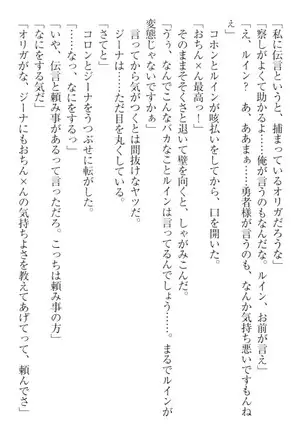 「私に伝言というと、捕まっているオリガだろうな」
「察しがよくて助かるよ……俺が言うのもなんだな。ルイン、お前が言え」
「え、ルイン？　あ、ああまぁ……勇者様が言うのも、なんか気持ち悪いですもんね
ぇ」
コホンとルインが咳払いをしてから、口を開いた。
「おちん×ん最高っ！」
そのままそそくさと退いて壁を向くと、しゃがみこんだ。
「うぅ、なんでこんなバカなことルインは言ってるんでしょう……。まるでルインが
変態じゃないですかぁ」
言ってから気がつくとは間抜けなヤツだ。
ジーナは……ただ目を丸くしている。
「さてと」
コロンとジーナをうつぶせに転がした。
「……なっ、なにをするっ」
「いや、伝言と頼み事があるって言っただろ。こっちは頼み事の方」
「なにをする気だ」
「オリガがな、ジーナにもおちん×んの気持ちよさを教えてあげてって、頼んでさ」